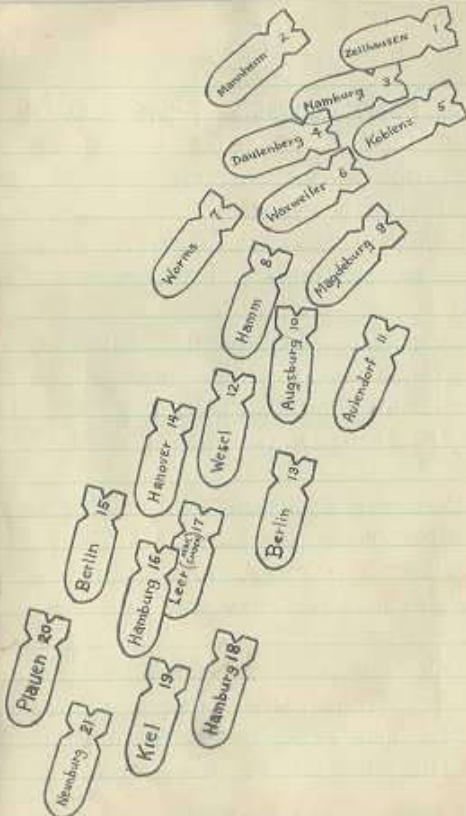 Zellhausen 1
Mannheim 2
Hamburg 3
Daulenberg 4
Koblenz 5
Waxweiler 6
Worms 7
Hamm 8
Magdeburg 9
Augsburg 10
Aulendorf 11
Wesel 12
Berlin 13
Hanover 14
Berlin 15
Hamburg 16
Leer 17
Hamburg 18
Kiel 19
Plauen 20
Neunburg 21